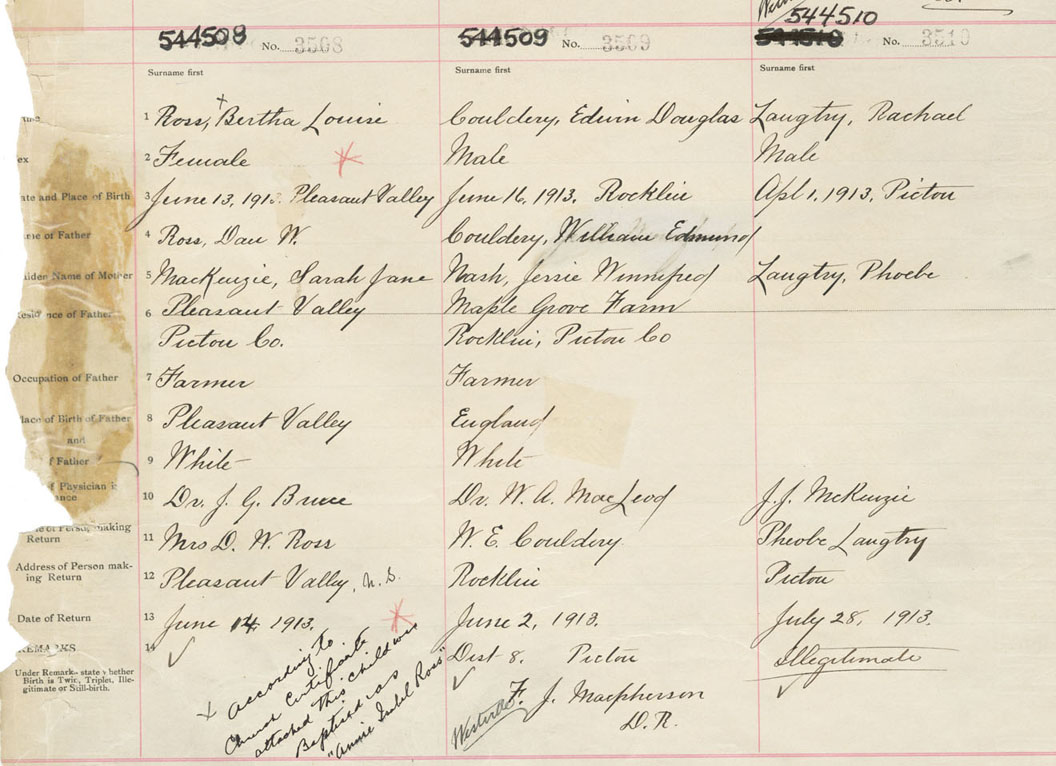 544510
544508 No. 3508
544509 No. 3509
544510 No. 3510
Surname first
Surname first
Surname first
1 Ross, Bertha Louise
Couldery, Edwin Douglas
Langtry, Rachael
ex
2 Female
Male
Male
ate and Place of Birth
3 June 13, 1913. Pleasant Valley
June 16, 1913. Rocklin
Apl 1, 1913, Pictou
me of Father
4 Ross, Dan W.
Couldery, William Edmund
aiden Name of Mother
5 MacKenzie, Sarah Jane
Nash, Jessie Winnifred
Langtry, Phoebe
Residence of Father
6 Pleasant Valley
Maple Grove Farm
Pictou Co.
Rocklin, Pictou Co
Occupation of Father
7 Farmer
Farmer
lace of Birth of Father
8 Pleasant Valley
England
and
f Father
9 White
White
of Physician i
ance
10 Dr. J. G. Bruce
Dr. W. A. MacLeod
J. J. McKenzie
e of Person making
Return
11 Mrs D. W. Ross
W. E. Couldery
Pheobe Langtry
Address of Person mak-
ing Return
12 Pleasant Valley, N.S.
Rocklin
Pictou
Date of Return
13 June 14 1913.
June 2, 1913.
July 28, 1913.
REMARKS
14
Dist 8. Pictou
Illegitimate
Under Remark state whether
Birth is Twin, Triplet, Ille-
gitimate or Still-birth.
+ According to
Church Certificate
attached this child was
Baptised as
"Annie Isabel Ross"
Westville
F. J. Macpherson
D. R.